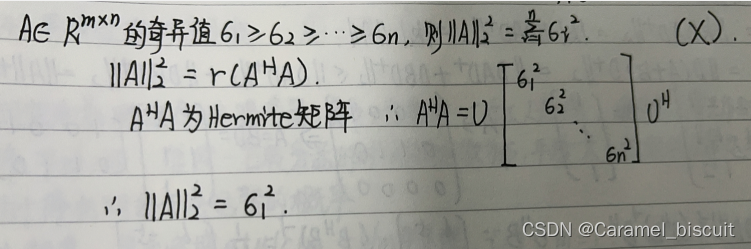 A∈ R^{m×n} 的奇异值 6₁ ≥ 6₂ ≥ ⋯ ≥ 6n, 则 ||A||₂² = Σ_{i=1}^{n} 6i². (X).
||A||₂² = r(A^H A).
A^H A 为 Hermite矩阵 ∴ A^H A = U [6₁² 6₂² ⋱ 6n²] U^H
∴ ||A||₂² = 6₁².
CSDN @Caramel_biscuit